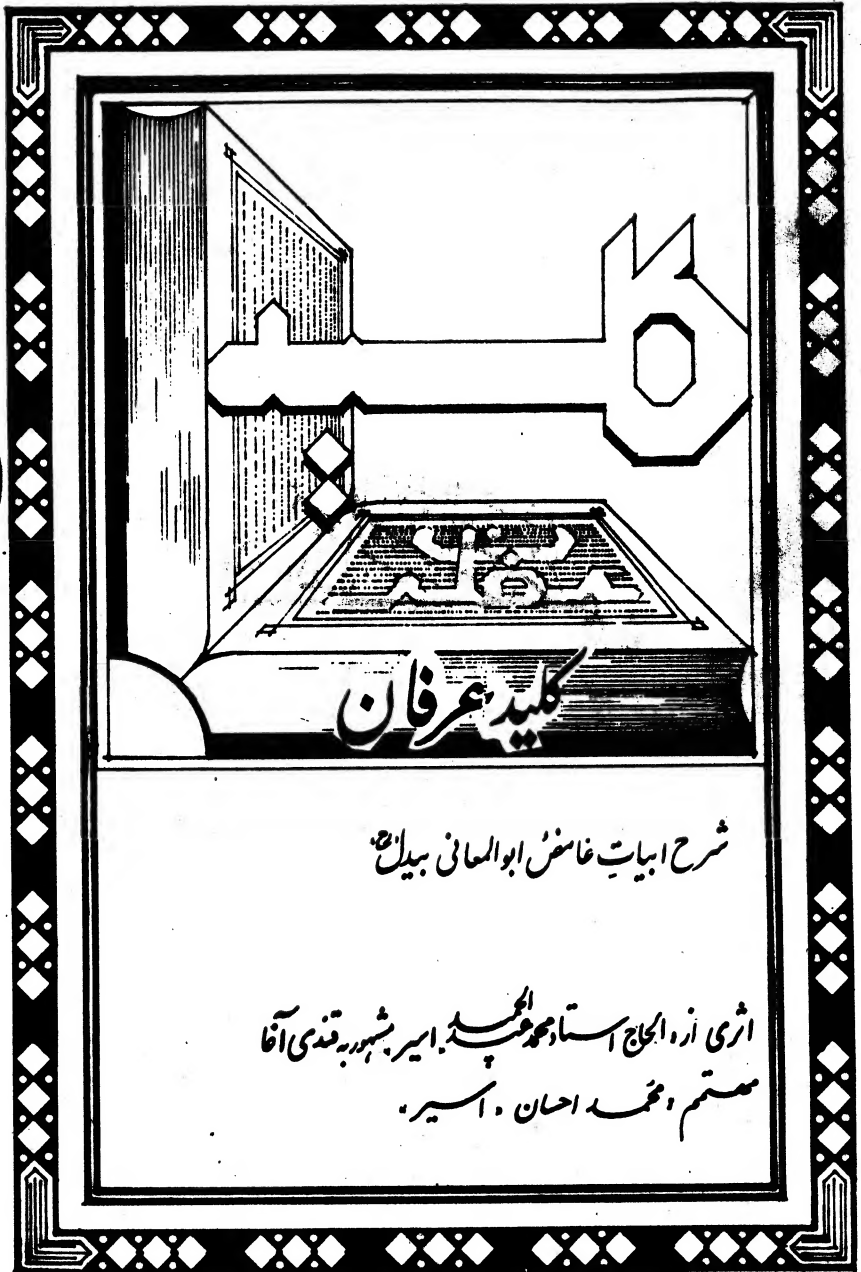 کلید عرفان
شرح ابیاتِ غامضِ ابوالمعانی بیدل رح
اثری از: الحاج استاد محمد عبدالحمید اسیر مشهور به قندی آغا
مهتمم: محمد احسان «اسیر»